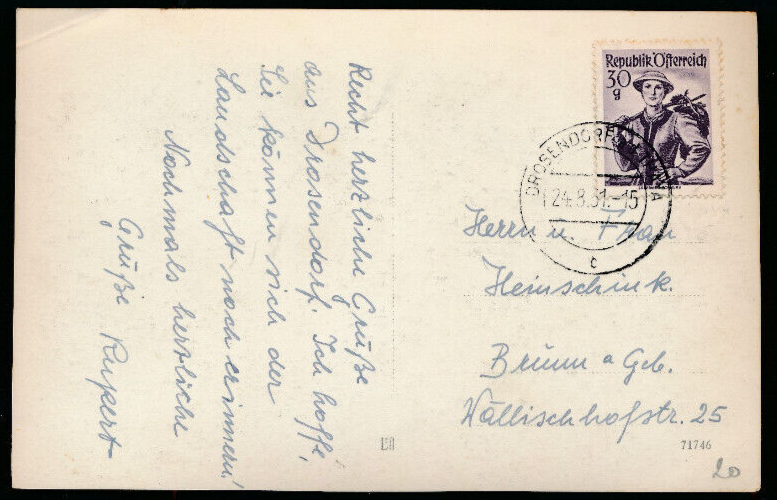 Recht herzliche Grüße
aus Drosendorf. Ich hoffe,
Sie können sich der
Landschaft noch erinnern!
Nochmals herzliche
Grüße Rupert
Republik Österreich
30
g
DROSENDORF
24.8.51.-15
c
Herrn u. Frau
Heinschink.
Brunn a Geb.
Wällischhofstr. 25
71746
20